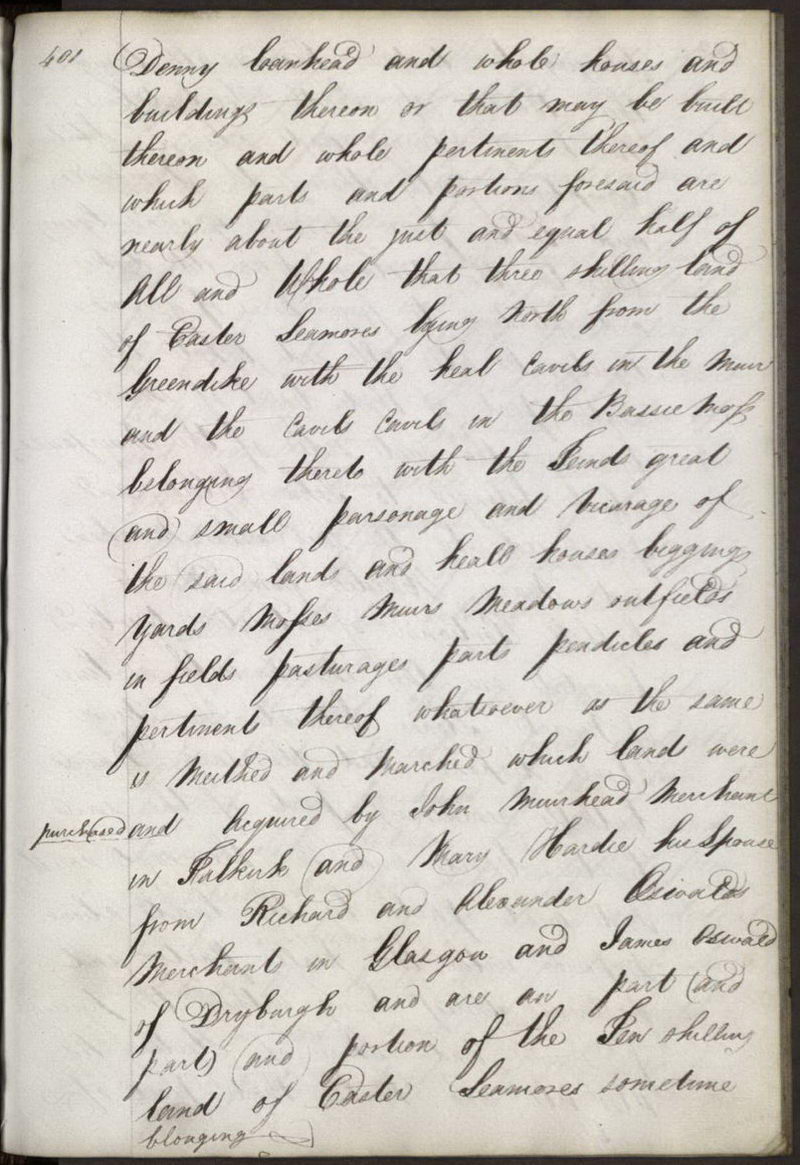 401
Denny Loanhead and whole houses and
buildings thereon or that may be built
thereon and whole pertinents thereof and
which parts and portions foresaid are
nearly about the just and equal half of
All and Whole that three shilling land
of Easter Seamores lying North from the
Greendike with the heal Cavils in the Muir
and the Cavils Cavils in the Bassie Moss
belonging thereto with the Teinds great
and small parsonage and vicarage of
the said lands and heall houses biggings
Yards Mosses Muirs Meadows outfields
in fields pasturages parts pendicles and
pertinents thereof whatsoever as the same
is Meithed and Marched which lands were
purchased
and Acquired by John Muirhead Merchant
in Falkirk (and) Mary Hardie his Spouse
from Richard and Alexander Oswalds
Merchants in Glasgow and James Oswald
of Dryburgh and are an part (and
part) (and) portion of the Ten shilling
land of Easter Seamores sometime
blonging